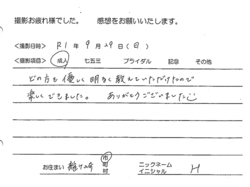 撮影お疲れ様でした。 感想をお願いいたします。
<撮影日時> R1年 9月 29日(日)
<撮影項目> 成人 七五三 ブライダル 記念 その他
どの方も優しく明るく教えていただけたので
楽しくできました。 ありがとうございました
お住まい 市町村 ニックネーム イニシャル H